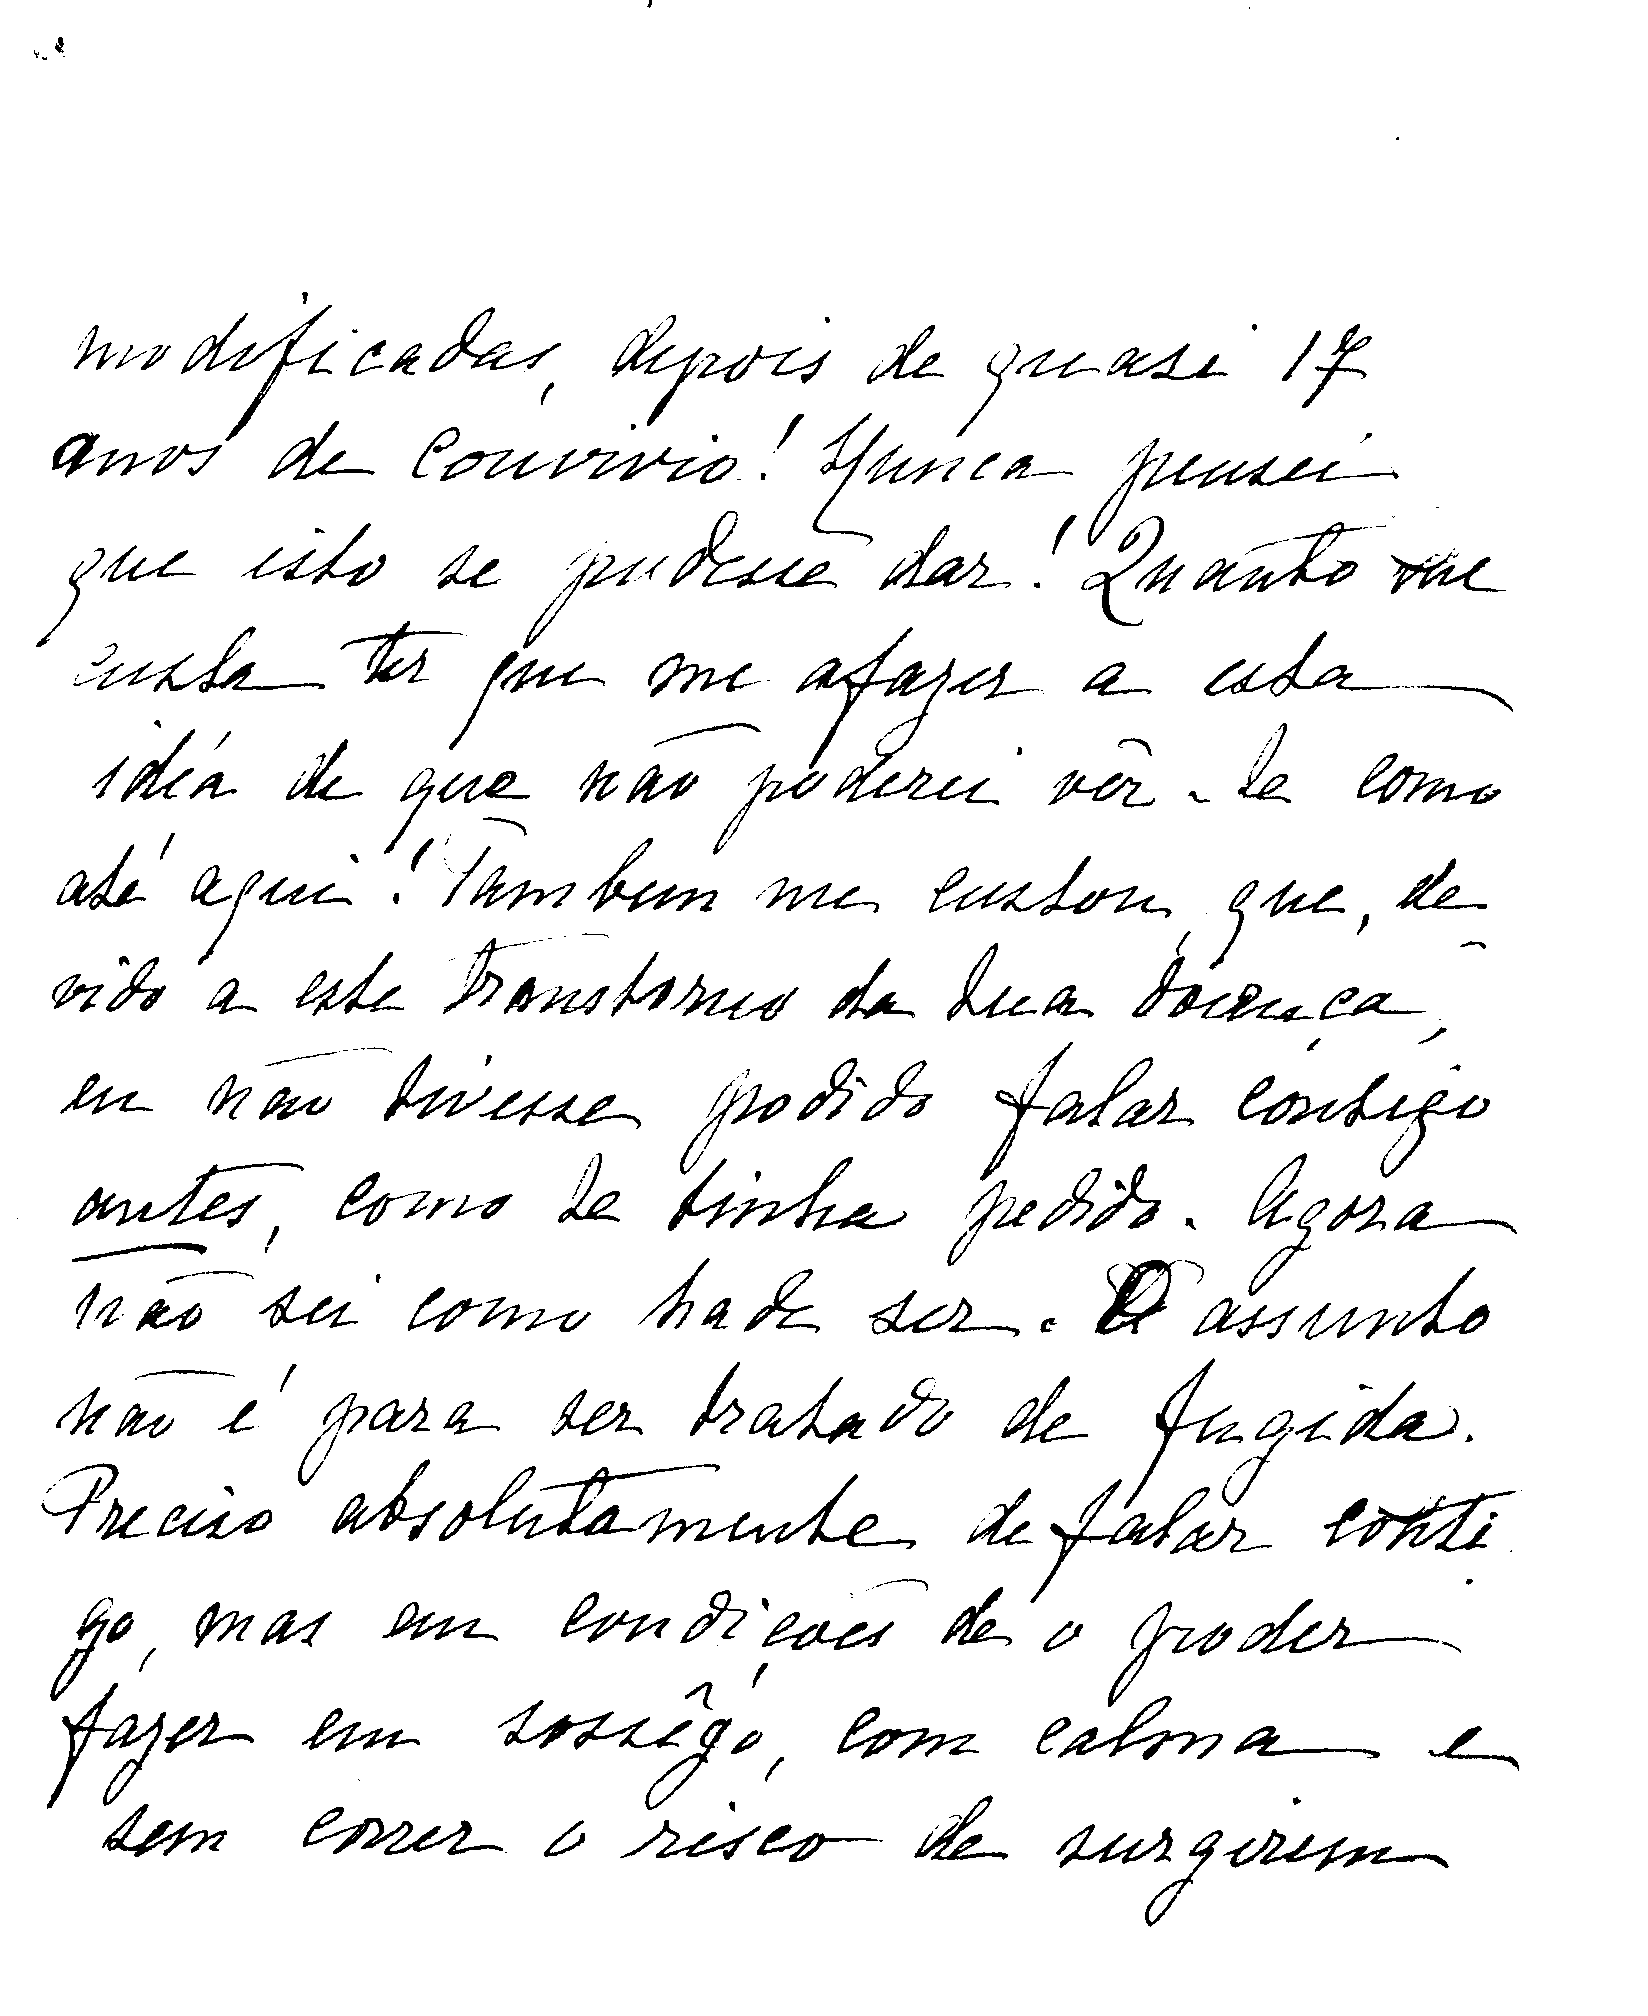 modificadas, depois de quasi 17
anos de convivio! Nunca pensei
que isto se pudesse dar! Quanto me
custa ter que me afazer a esta
idéa de que não poderei vêr-te como
até aqui! Tambem me custou, que, de
vido a este transtorno da tua doença,
eu não tivesse podido falar contigo
antes, como te tinha pedido. Agora
não sei como hade ser. O assunto
não é para ser tratado de fugida.
Preciso absolutamente de falar conti
go, mas em condições de o poder
fazer em sossêgo, com calma e
sem correr o risco de surgirem